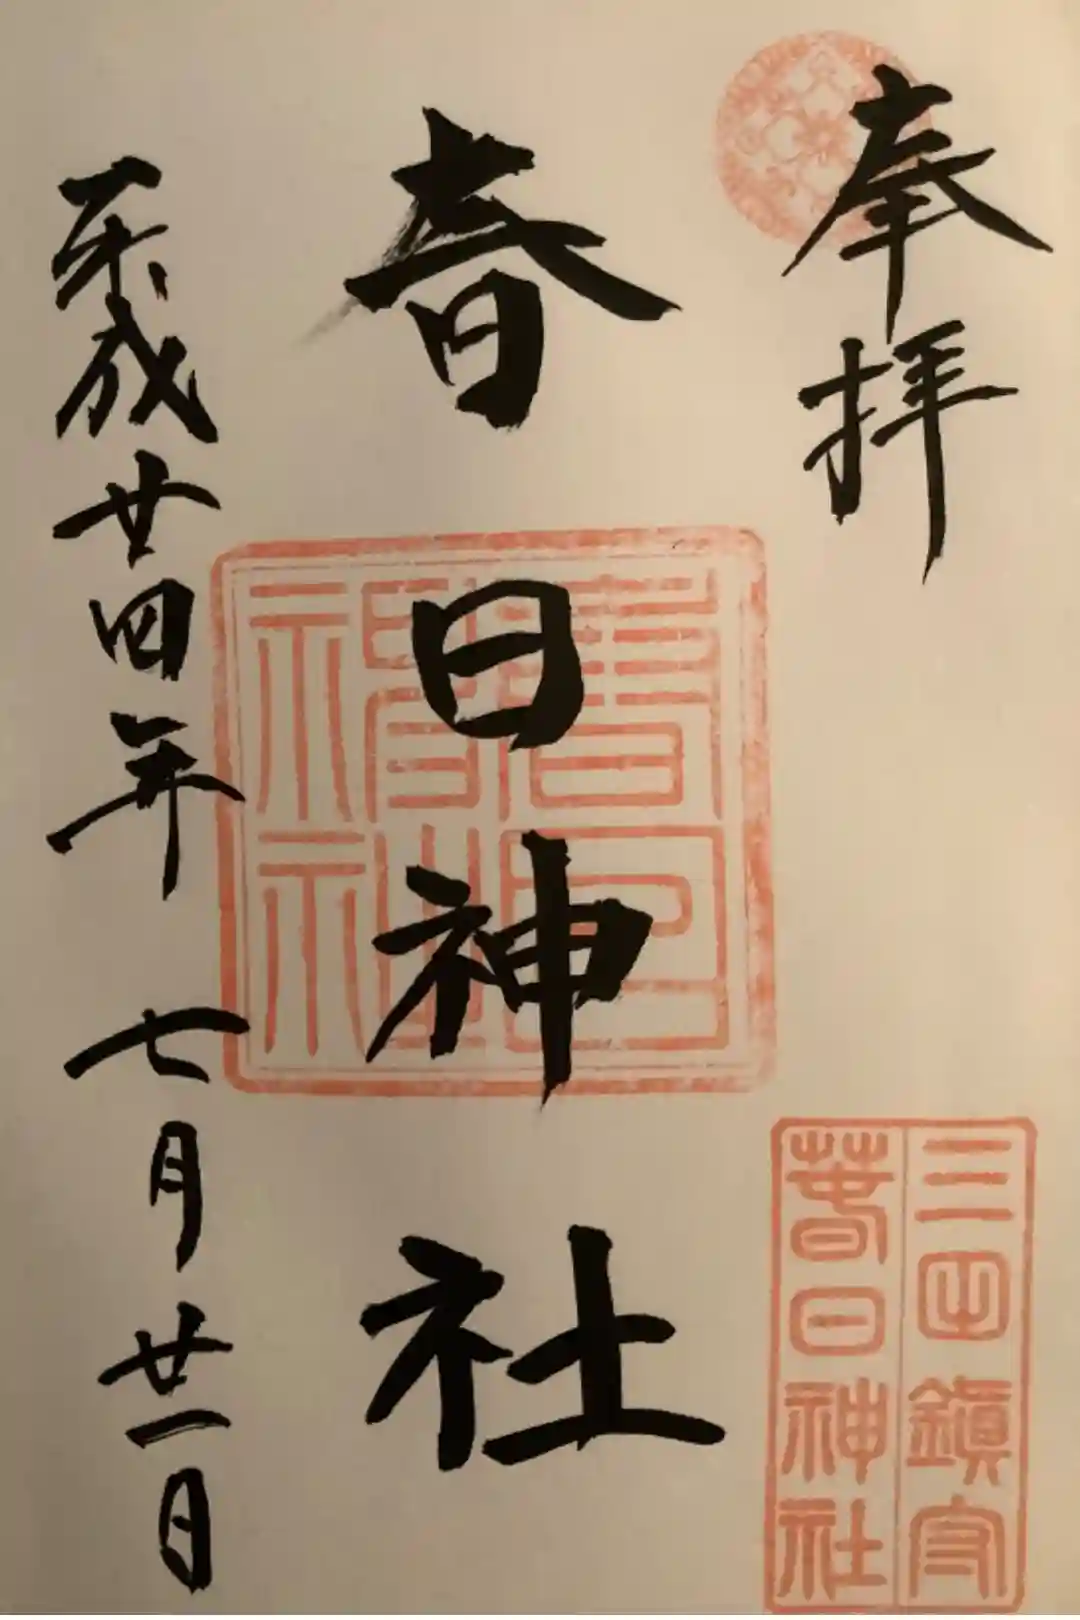 奉拝
三田鎮守
春日神社
春日神社
春日神社
平成廿四年 七月廿一日